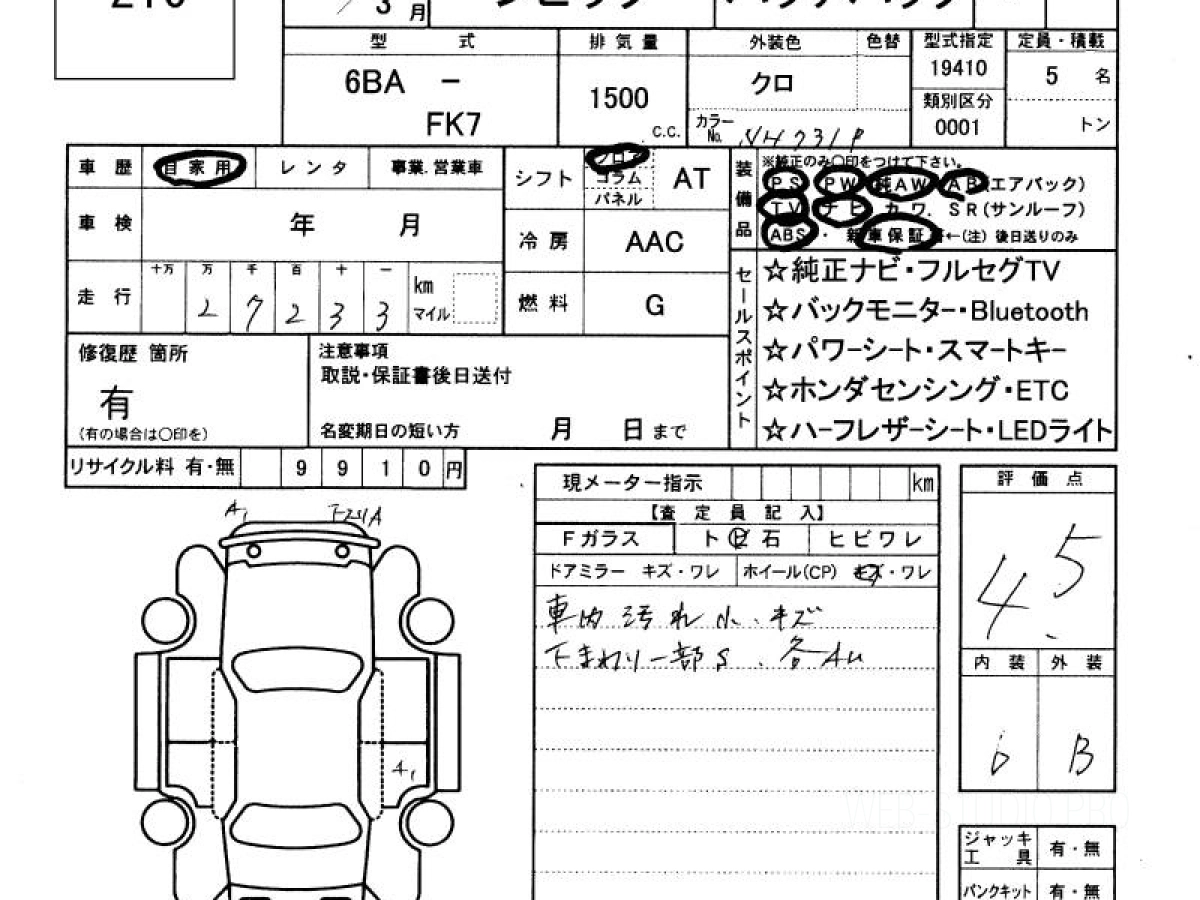 3月
型 式 排気量 外装色 色替 型式指定 定員・積載
6BA - 1500 クロ 19410 5 名
類別区分
FK7 C.C. カラーNo. NH731P 0001 トン
車歴 自家用 レンタ 事業.営業車 シフト フロア コラム パネル AT
装備品 ※純正のみ○印をつけて下さい。
PS PW 純AW AB(エアバック)
TV ナビ カワ. SR(サンルーフ)
ABS・ 新車保証書←(注) 後日送りのみ
車検 年 月 冷房 AAC
走行 十万 万 千 百 十 一 km マイル
2 7 2 3 3
燃料 G
セールスポイント
☆純正ナビ・フルセグTV
☆バックモニター・Bluetooth
☆パワーシート・スマートキー
☆ホンダセンシング・ETC
☆ハーフレザーシート・LEDライト
修復歴 箇所
有
(有の場合は○印を)
注意事項
取説・保証書後日送付
名変期日の短い方 月 日まで
リサイクル料 有・無 9 9 1 0 円
現メーター指示 km
【査定員記入】
Fガラス ト ビ 石 ヒビワレ
ドアミラー キズ・ワレ ホイール(CP) キズ・ワレ
車内汚れ小、キズ
下まわり一部S、各AU
評価点
4.5
内装 外装
b B
A1
A1
ジャッキ工具 有・無
パンクキット 有・無